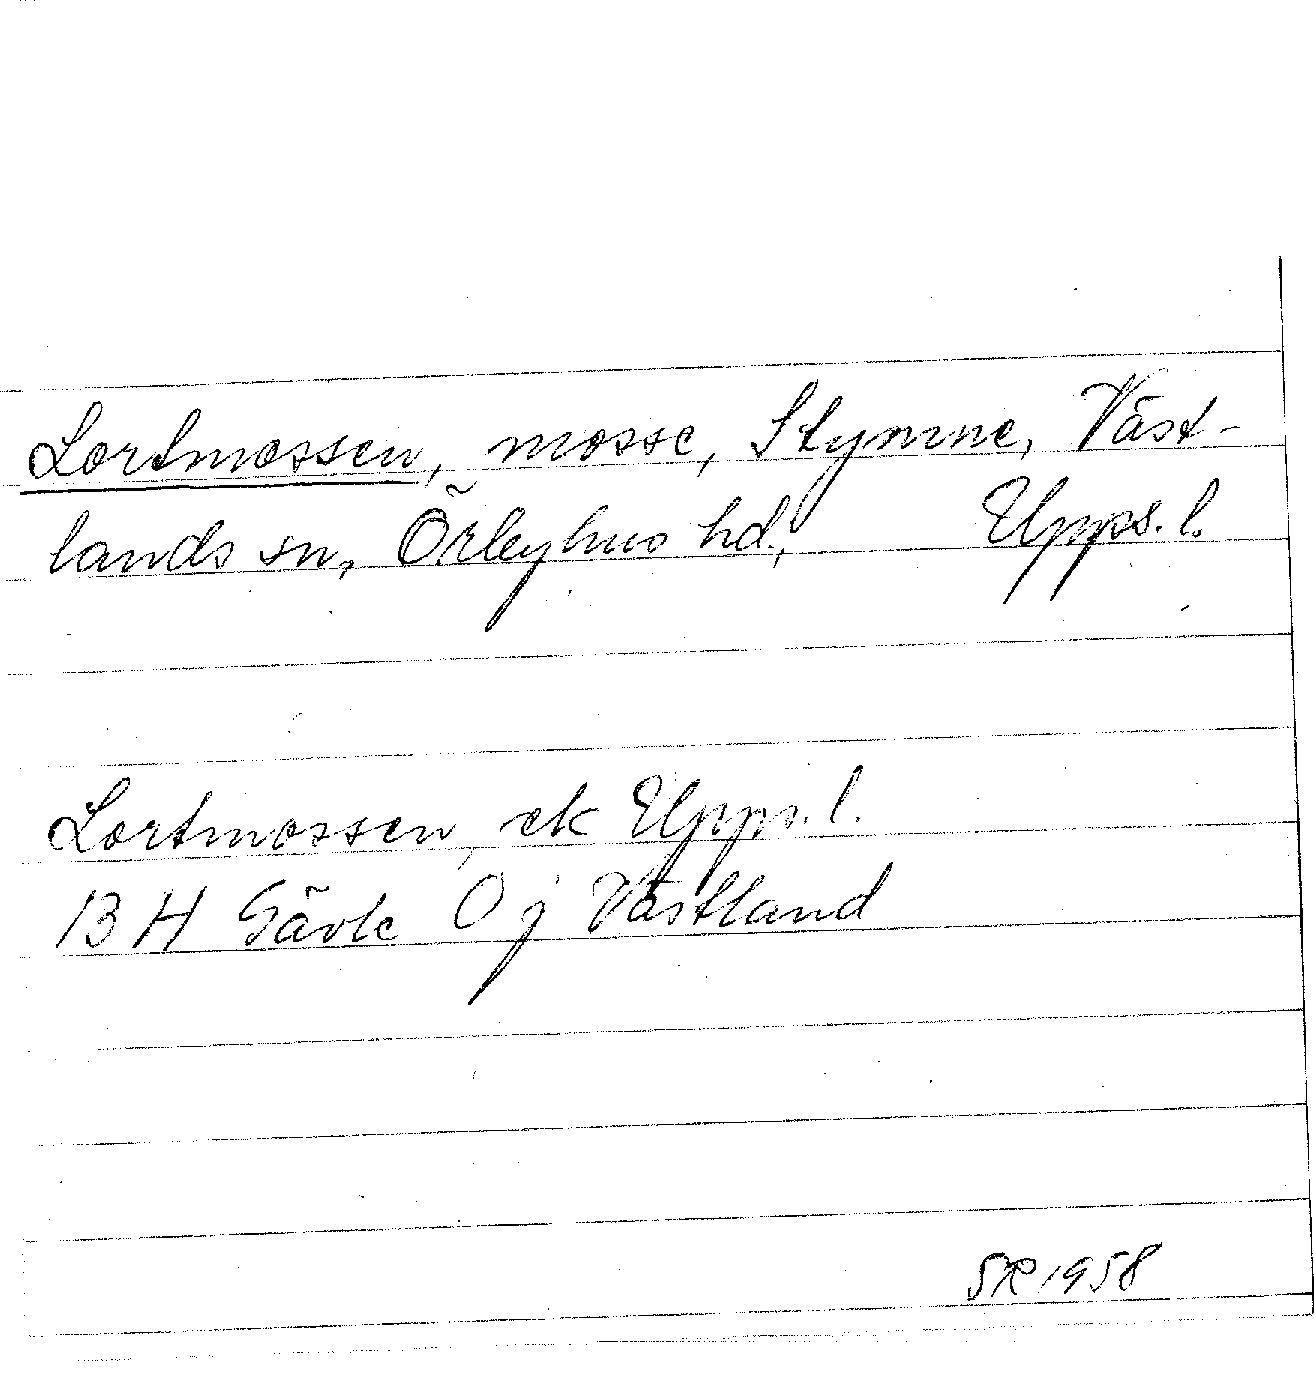 Lortmossen, mosse, Stymne, Väst-
lands sn, Örbyhus hd, Upps. l.
Lortmossen, ek Upps. l.
13 H Gävle O j Västland
SR 1958